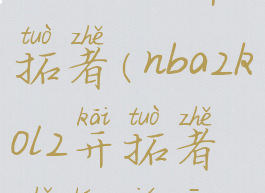 tuò zhě
拓者(nba2k
kāi tuò zhě
ol2开拓者